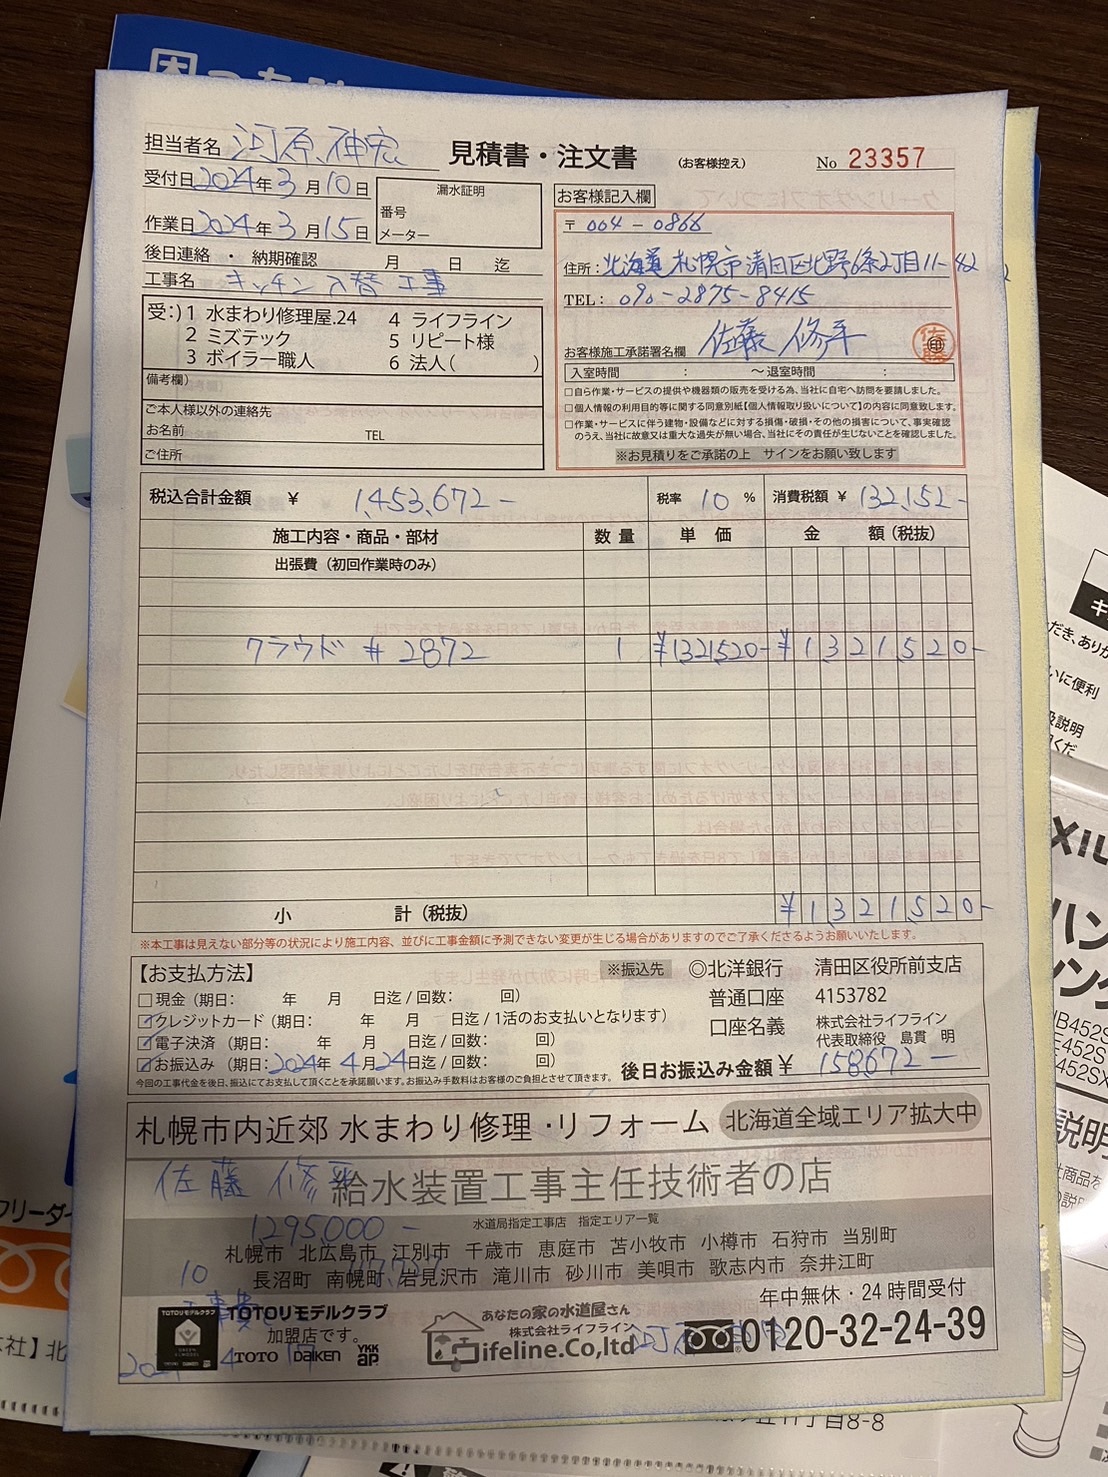 担当者名 河原 伸宏
見積書・注文書 (お客様控え) No 23357
受付日 2024年 3月 10日
作業日 2024年 3月 15日
漏水証明
番号
メーター
後日連絡 ・ 納期確認 月 日 迄
工事名 キッチン入替工事
受:) 1 水まわり修理屋.24 4 ライフライン
2 ミズテック 5 リピート様
3 ボイラー職人 6 法人( )
備考欄)
ご本人様以外の連絡先
お名前 TEL
ご住所
お客様記入欄
〒 004 - 0866
住所: 北海道札幌市清田区北野6条2丁目11-42
TEL: 090-2875-8415
お客様施工承諾署名欄 佐藤 修平 ㊞
入室時間 : 〜退室時間 :
□自ら作業・サービスの提供や機器類の販売を受ける為、当社に自宅へ訪問を要請しました。
□個人情報の利用目的等に関する同意別紙【個人情報取り扱いについて】の内容に同意致します。
□作業・サービスに伴う建物・設備などに対する損傷・破損・その他の損害について、事実確認
のうえ、当社に故意又は重大な過失が無い場合、当社にその責任が生じないことを確認しました。
※お見積りをご承諾の上 サインをお願い致します
税込合計金額 ¥ 1,453,672- 税率 10 % 消費税額 ¥ 132,152-
施工内容・商品・部材 数量 単価 金 額(税抜)
出張費(初回作業時のみ)
クラウド #2872 1 ¥1321,520- ¥1321520-
小 計(税抜) ¥1321520-
※本工事は見えない部分等の状況により施工内容、並びに工事金額に予測できない変更が生じる場合がありますのでご了承くださるようお願いいたします。
【お支払方法】
□現金(期日: 年 月 日迄/回数: 回)
☑クレジットカード(期日: 年 月 日迄/1活のお支払いとなります)
☑電子決済(期日: 年 月 日迄/回数: 回)
☑お振込み(期日: 2024年 4月 24日迄/回数: 回)
今回の工事代金を後日、振込にてお支払して頂くことを承諾願います。お振込み手数料はお客様のご負担とさせて頂きます。
※振込先 ◎北洋銀行 清田区役所前支店
普通口座 4153782
口座名義 株式会社ライフライン
代表取締役 島貫 明
後日お振込み金額 ¥ 158,672-
札幌市内近郊 水まわり修理・リフォーム 北海道全域エリア拡大中
佐藤 修平
給水装置工事主任技術者の店
1295,000-
水道局指定工事店 指定エリア一覧
札幌市 北広島市 江別市 千歳市 恵庭市 苫小牧市 小樽市 石狩市 当別町
10
長沼町 南幌町 岩見沢市 滝川市 砂川市 美唄市 歌志内市 奈井江町
工事費
年中無休・24時間受付
TOTOリモデルクラブ
TOTOリモデルクラブ
加盟店です。
TOTO DAIKEN YKK ap
あなたの家の水道屋さん
株式会社ライフライン
Lifeline.Co,ltd
0120-32-24-39